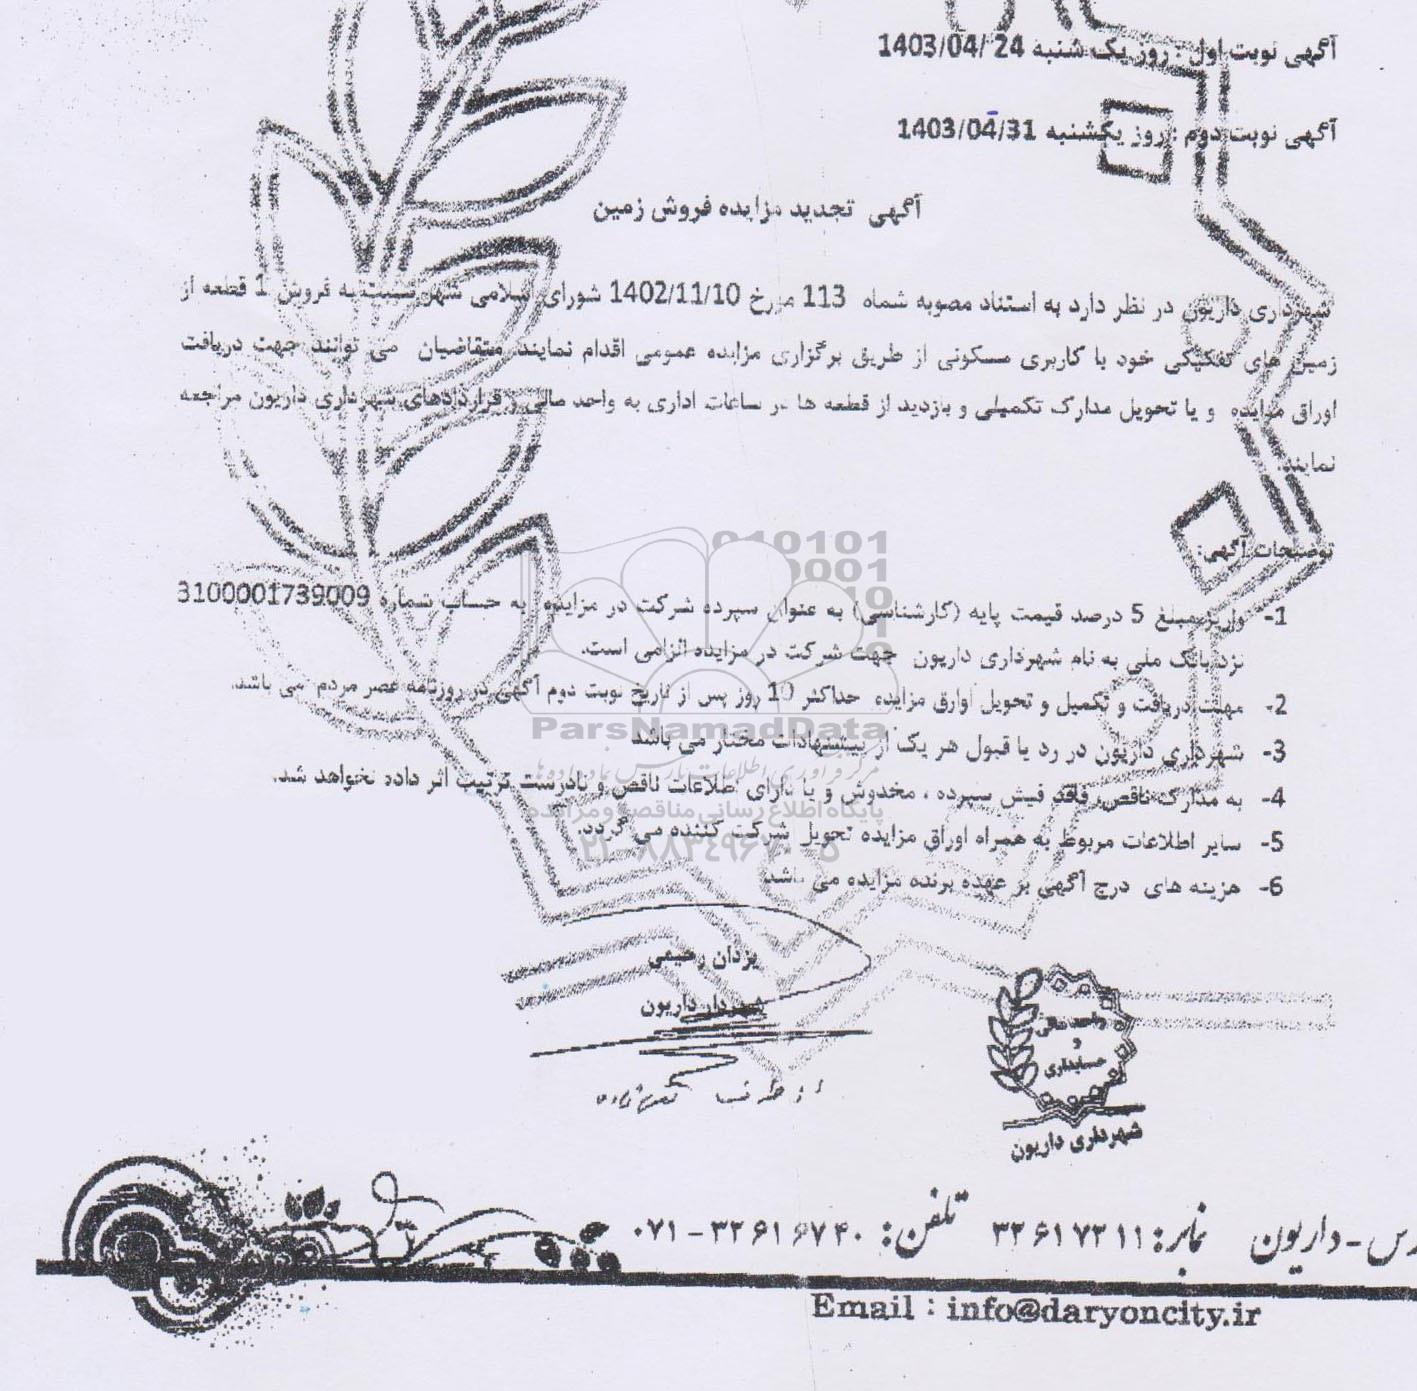 آگهی نوبت اول : روز یک شنبه 24 /1403/04
آگهی نوبت دوم : روز یکشنبه 1403/04/31
آگهی تجدید مزایده فروش زمین
شهرداری داریون در نظر دارد به استناد مصوبه شماه 113 مورخ 1402/11/10 شورای اسلامی شهر نسبت به فروش 1 قطعه از
زمین های تفکیکی خود با کاربری مسکونی از طریق برگزاری مزایده عمومی اقدام نمایند. متقاضیان می توانند جهت دریافت
اوراق مزایده و یا تحویل مدارک تکمیلی و بازدید از قطعه ها در ساعات اداری به واحد مالی و قراردادهای شهرداری داریون مراجعه
نمایند.
توضیحات آگهی:
1- واریز مبلغ 5 درصد قیمت پایه (کارشناسی) به عنوان سپرده شرکت در مزایده به حساب شماره 3100001739009
نزد بانک ملی به نام شهرداری داریون جهت شرکت در مزایده الزامی است.
2- مهلت دریافت و تکمیل و تحویل اوارق مزایده حداکثر 10 روز پس از تاریخ نوبت دوم آگهی در روزنامه عصر مردم می باشد.
3- شهرداری داریون در رد یا قبول هر یک از پیشنهادات مختار می باشد
4- به مدارک ناقص، فاقد فیش سپرده ، مخدوش و یا دارای اطلاعات ناقص و نادرست ترتیب اثر داده نخواهد شد.
5- سایر اطلاعات مربوط به همراه اوراق مزایده تحویل شرکت کننده می گردد.
6- هزینه های درج آگهی بر عهده برنده مزایده می باشد
ParsNamadData
مرکز فرآوری اطلاعات پارس نماد داده ها
پایگاه اطلاع رسانی مناقصه و مزایده
۰۲۱-۸۸۳۴۹۶۷۰-۵
یزدان رحیمی
شهردار داریون
از طرف
واحد مالی
و
حسابداری
شهرداری داریون
رس - داریون نمابر: ۳۲۶۱۷۳۱۱ تلفن: ۳۲۶۱۶۷۴۰-۰۷۱
Email : info@daryoncity.ir